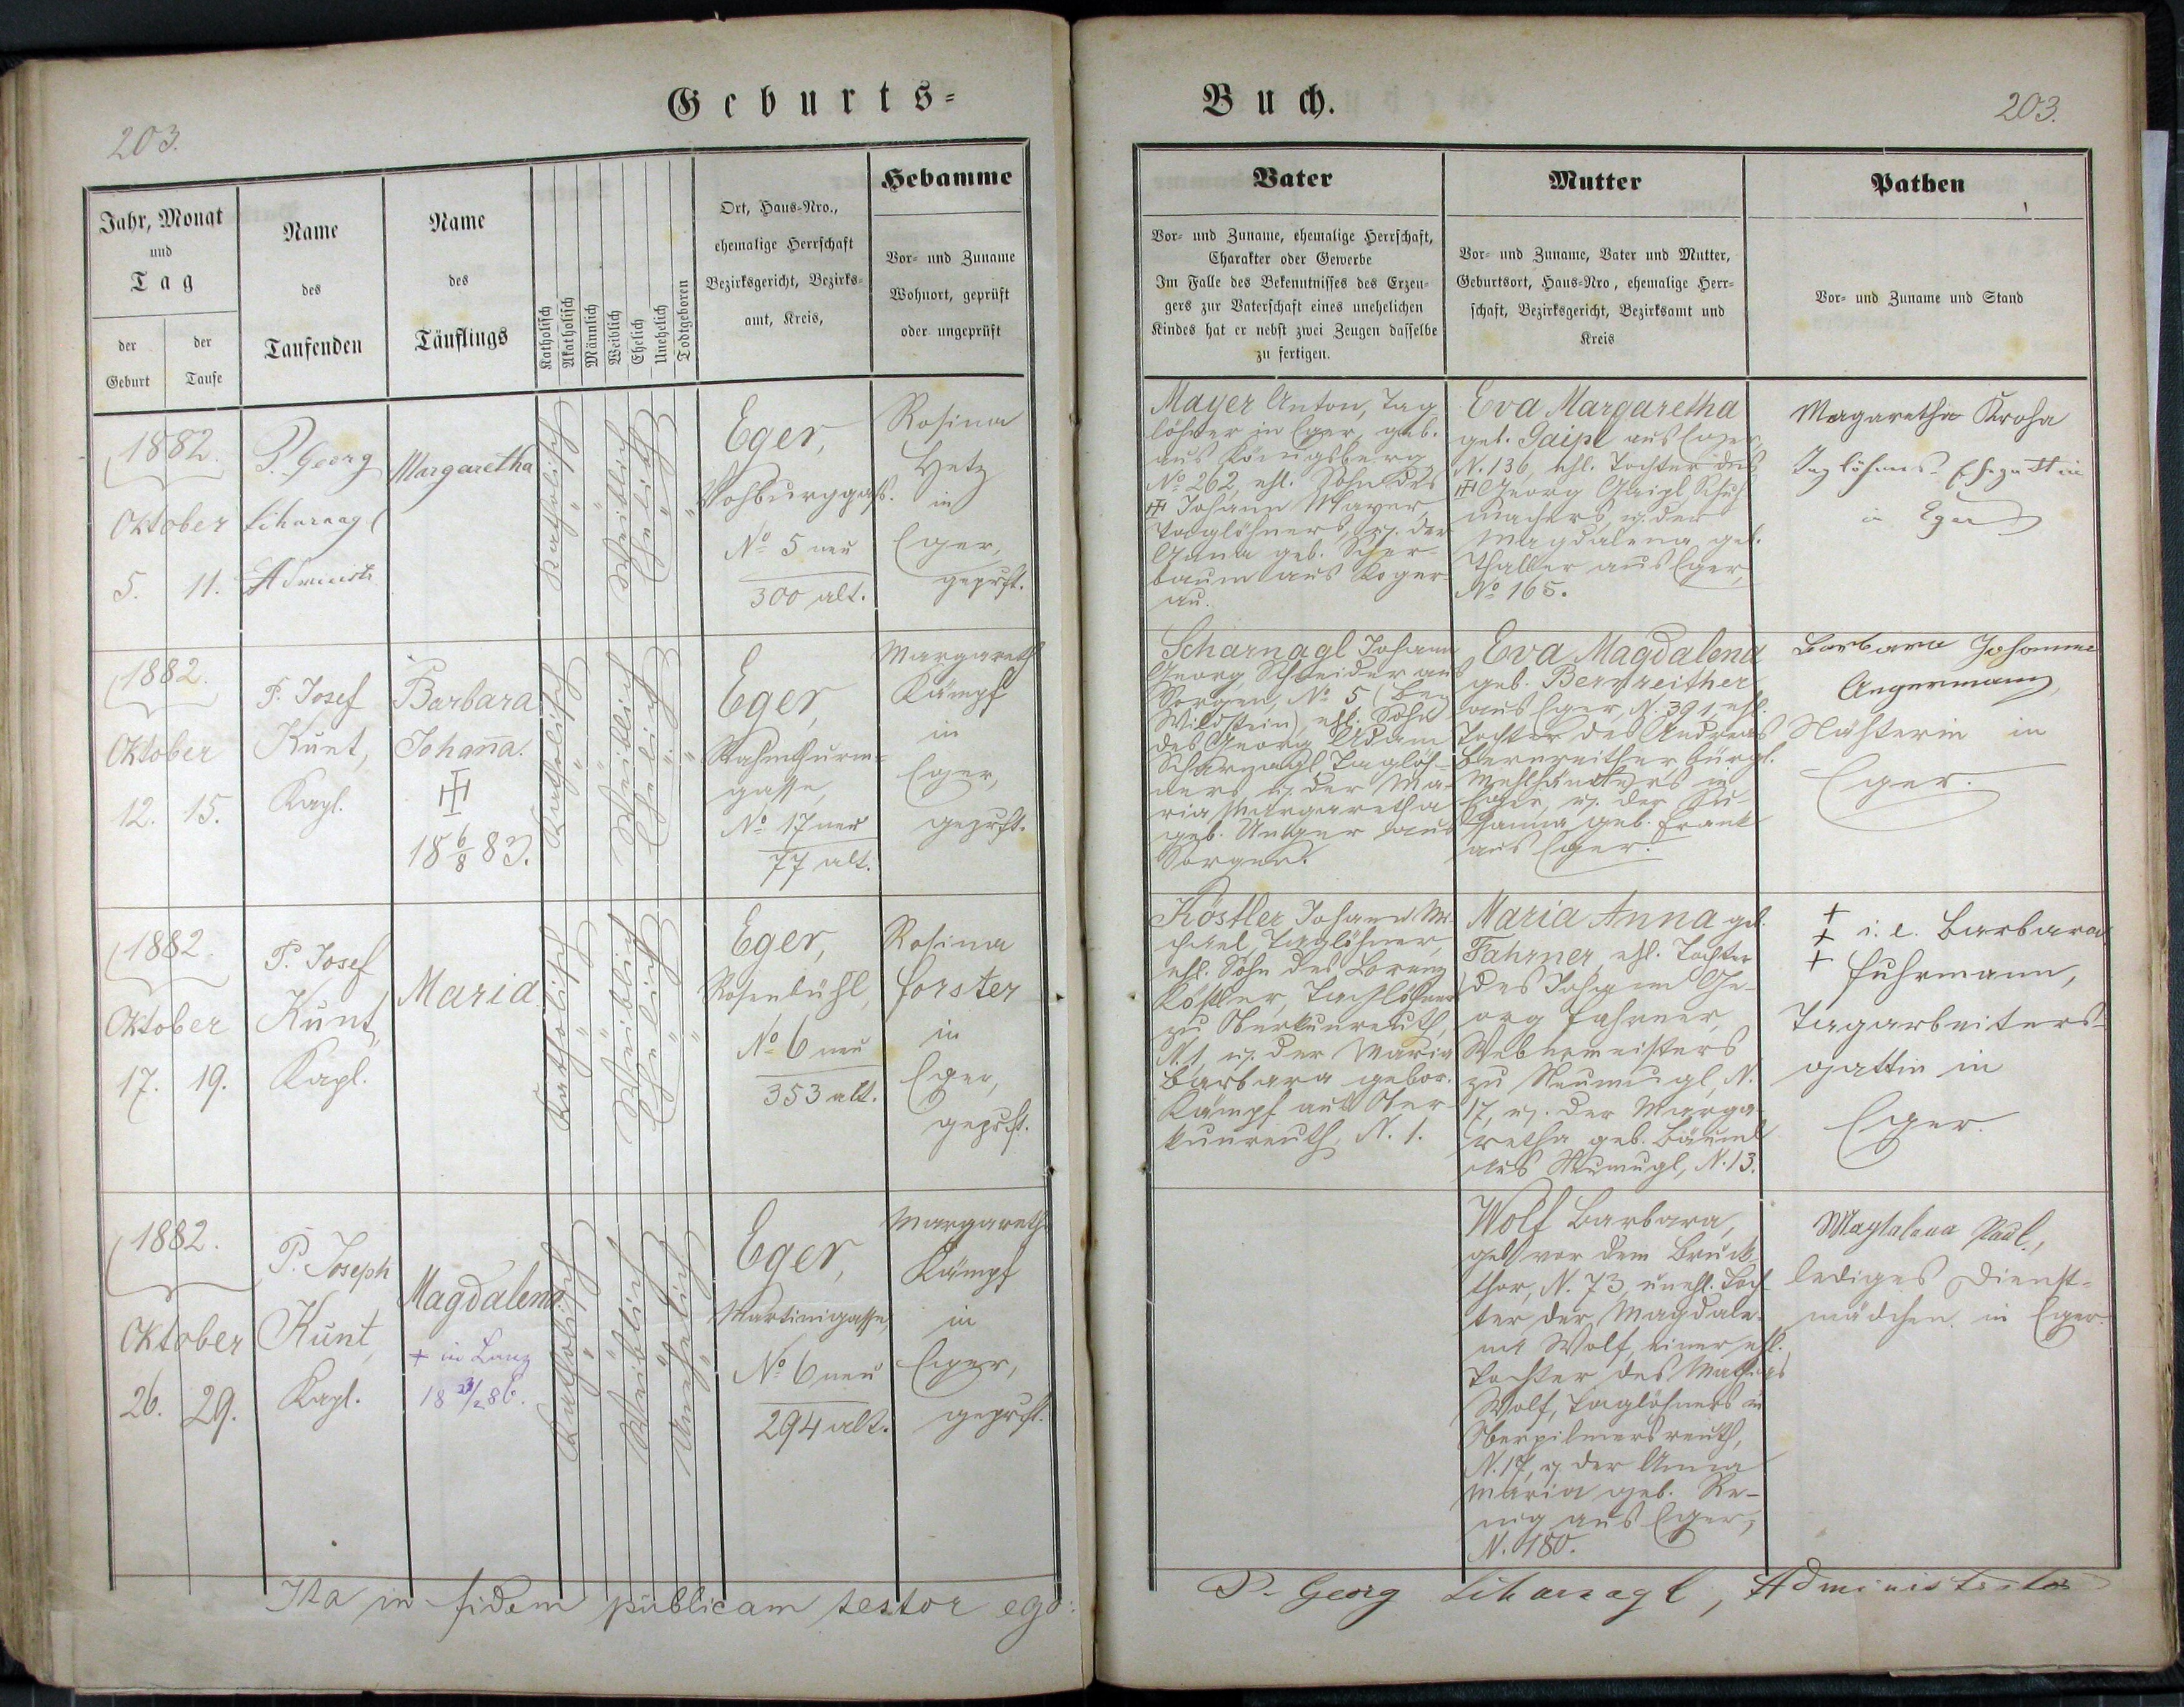 Geburts=
Buch.
203.
203.
Jahr, Monat
und
Tag
der
Geburt
der
Taufe
Name
des
Taufenden
Name
des
Täuflings
Katholisch
Akatholisch
Männlich
Weiblich
Ehelich
Unehelich
Todtgeboren
Ort, Haus-Nro.,
ehemalige Herrschaft
Bezirksgericht, Bezirks-
amt, Kreis,
Hebamme
Vor- und Zuname
Wohnort, geprüft
oder ungeprüft
Vater
Vor- und Zuname, ehemalige Herrschaft,
Charakter oder Gewerbe
Im Falle des Bekenntnisses des Erzeu-
gers zur Vaterschaft eines unehelichen
Kindes hat er nebst zwei Zeugen dasselbe
zu fertigen.
Mutter
Vor- und Zuname, Vater und Mutter,
Geburtsort, Haus-Nro, ehemalige Herr-
schaft, Bezirksgericht, Bezirksamt und
Kreis
Pathen
Vor- und Zuname und Stand
1882.
Oktober
5. 11.
P. Georg
Administr.
Margaretha
Katholisch
Weiblich
Ehelich
Eger,
Vohburggass.
No 5 neu
300 alt.
Rosina
Hetz
in
Eger,
geprft.
Mayer Anton, Tag
löhner in Eger, geb.
aus Königsberg
No 262, ehl. Sohn des
Johann Mayer,
Taglöhners, u. der
Anna geb. Scher-
baum aus Koger-
au.
Eva Margaretha
geb. Gaipl aus Eger,
N. 136, ehl. Tochter des
Georg Gaipl, Schuh
machers, u. der
Magdalena geb.
Thaller aus Eger,
No 165.
Magaretha Kroha
Taglöhners-Ehegattin
in Eger
1882.
Oktober
12. 15.
P. Josef
Kunt,
Kapl.
Barbara
Johanna.
18 6/8 83.
Katholisch
Weiblich
Ehelich
Eger,
Rahmthurm-
gasse,
No 17 neu
77 alt.
Margareth
Kämpf
in
Eger,
geprft.
Scharnagl Johann
Georg, Schneider aus
Sorgen, No 5 (Bez
Wildstein), ehl. Sohn
des Georg Adam
Scharnagl, Taglöh-
ners, u. der Ma-
ria Margaretha
geb. Unger aus
Sorgen.
Eva Magdalena
geb. Bernreither
aus Eger, N. 391, ehl.
Tochter des Andreas
Bernreither, bürgl.
Mehlhändlers in
Eger, u. der Su-
sanna geb. Frank
aus Eger.
Barbara Johanna
Angermann,
Nähterin in
Eger.
1882.
Oktober
17. 19.
P. Josef
Kunt,
Kapl.
Maria
Katholisch
Weiblich
Ehelich
Eger,
Rosenbühl,
No 6 neu
353 alt.
Rosina
Forster
in
Eger,
geprft.
Köstler Johann Mi
chael, Taglöhner,
ehl. Sohn des Lorenz
Köstler, Taglöhner
zu Oberkunreuth,
N. 1, u. der Maria
Barbara gebor.
Kämpf aus Ober-
kunreuth, N. 1.
Maria Anna geb.
Fahrner, ehl. Tochter
des Johann Ge-
org Fahrner,
Webermeisters
zu Neumugl, N.
17, u. der Marga-
retha geb. Bäuml
aus Neumugl, N. 13.
+
+ i. e. Barbara
+ Fuhrmann,
Tagarbeiters-
gattin in
Eger.
1882.
Oktober
26. 29.
P. Joseph
Kunt,
Kapl.
Magdalena
+ in
Katholisch
Weiblich
Unehelich
Eger,
Martinigasse,
No 6 neu
294 alt.
Margareth
Kämpf
in
Eger,
geprft.
Wolf Barbara,
geb. vor dem Bruck
thor, N. 73, unehl. Toch
ter der Magdale-
na Wolf, einer ehl.
Tochter des Mathias
Wolf, Taglöhners in
Oberpilmersreuth,
N. 17, u. der Anna
Maria geb. Re-
nig aus Eger,
N. 180.
Magdalena Paul,
lediges Dienst-
mädchen in Eger.
Ita in fidem publicam testor ego:
P. Georg Scharnagl, Administrator